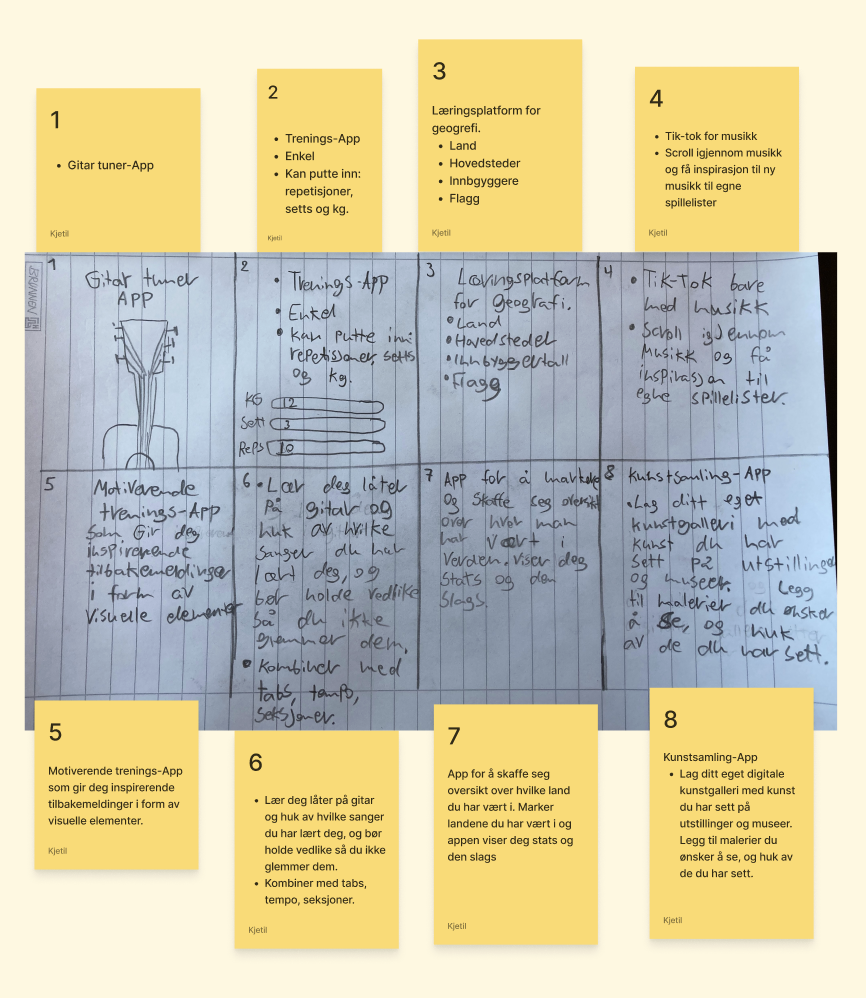 1
• Gitar tuner-App
Kjetil
2
• Trenings-App
• Enkel
• Kan putte inn:
repetisjoner,
setts og kg.
Kjetil
3
Læringsplatform for
geogrefi.
• Land
• Hovedsteder
• Innbgyggere
• Flagg
Kjetil
4
• Tik-tok for musikk
• Scroll igjennom musikk
og få inspirasjon til ny
musikk til egne
spillelister
Kjetil
BRUNNEN
1
Gitar tuner
APP
2
• Trenings-APP
• Enkel
• Kan putte inn:
repetisjoner, setts
og kg.
KG 12
Sett 3
Reps 10
3
Læringsplatform
for geografi.
• Land
• Hovedsteder
• Innbyggertall
• Flagg
4
• TiK-ToK bare
med musikk
• Scroll igjennom
Musikk og få
inspirasjon til
egne spillelister.
5
Motiverende
trenings-App
som Gir deg
inspirerende
tilbakemeldinger
i form av
Visuelle elementer
6
• Lær deg låter
på gitar og
huk av hvilke
sanger du har
lært deg, og
bør holde vedlike
så du ikke
glemmer dem.
• Kombiner med
tabs, tempo,
seksjoner.
7
APP for å markere
og skaffe seg oversikt
over hvor man
har Vært i
Verden. Viser deg
stats og den
slags.
8
Kunstsamling-APP
• Lag ditt eget
kunstgalleri med
kunst du har
sett på utstillinger
og museer. Legg
til malerier du ønsker
å se, og huk
av de du har sett.
5
Motiverende trenings-App
som gir deg inspirerende
tilbakemeldinger i form av
visuelle elementer.
Kjetil
6
• Lær deg låter på gitar
og huk av hvilke sanger
du har lært deg, og bør
holde vedlike så du ikke
glemmer dem.
• Kombiner med tabs,
tempo, seksjoner.
Kjetil
7
App for å skaffe seg
oversikt over hvilke land
du har vært i. Marker
landene du har vært i og
appen viser deg stats og
den slags
Kjetil
8
Kunstsamling-App
• Lag ditt eget digitale
kunstgalleri med kunst
du har sett på
utstillinger og museer.
Legg til malerier du
ønsker å se, og huk av
de du har sett.
Kjetil